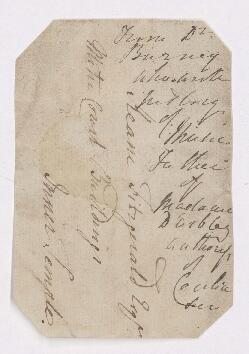 From Dr.
Burney
who wrote
history
of
Music
Father
of
Madame
Darblay
author
of
Cecilia
&c
Keane Fitzgerald Esqr
Mitre Court Buildings
Inner Temple